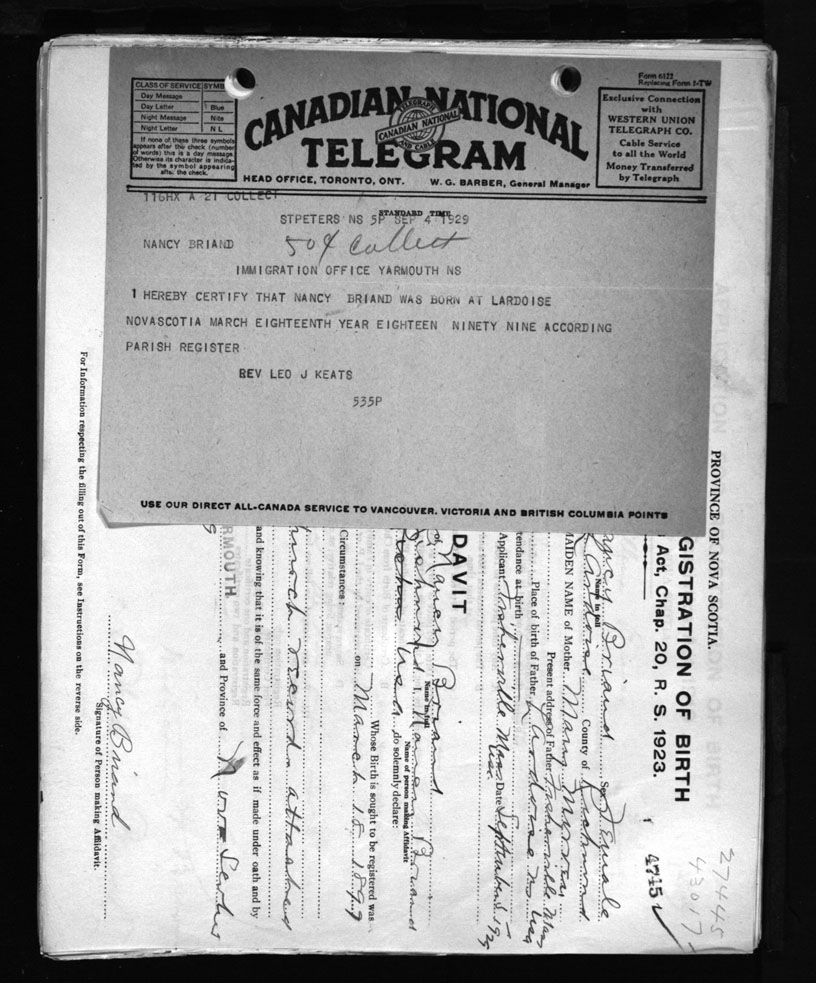 CLASS OF SERVICE SYMB
Day Message
Day Letter Blue
Night Message Nite
Night Letter N L
If none of these three symbols
appears after the check (number
of words) this is a day message.
Otherwise its character is indica-
ted by the symbol appearing
after the check.
CANADIAN NATIONAL
TELEGRAM
TELEGRAPH
CANADIAN NATIONAL
AND CABLE
HEAD OFFICE, TORONTO, ONT. W. G. BARBER, General Manager
Form 6122
Replacing Form 1-TW
Exclusive Connection
with
WESTERN UNION
TELEGRAPH CO.
Cable Service
to all the World
Money Transferred
by Telegraph
116HX A 21 COLLECT
STANDARD TIME
STPETERS NS 5P SEP 4 1929
NANCY BRIAND 50¢ Collect
IMMIGRATION OFFICE YARMOUTH NS
I HEREBY CERTIFY THAT NANCY BRIAND WAS BORN AT LARDOISE
NOVASCOTIA MARCH EIGHTEENTH YEAR EIGHTEEN NINETY NINE ACCORDING
PARISH REGISTER
REV LEO J KEATS
535P
USE OUR DIRECT ALL-CANADA SERVICE TO VANCOUVER, VICTORIA AND BRITISH COLUMBIA POINTS
27445
43017
PROVINCE OF NOVA SCOTIA.
GISTRATION OF BIRTH
Act, Chap. 20, R. S. 1923.
4745
Briand Sex Female
Name in full
County of Richmond
MAIDEN NAME of Mother Mary
Present address of Father
Place of birth of Father
tendance at birth
Applicant Date September
DAVIT
of Nancy Briand
Name in full
Richmond
Name of person making Affidavit
do solemnly declare:
Whose Birth is sought to be registered was
on March 18 1899
Circumstances:
church record attached
and knowing that it is of the same force and effect as if made under oath and by
RMOUTH
and Province of Nova Scotia
Nancy Briand
Signature of Person making Affidavit.
For Information respecting the filling out of this Form, see Instructions on the reverse side.